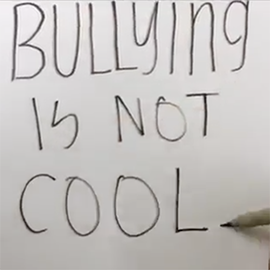 BULLYING
IS NOT
COOL